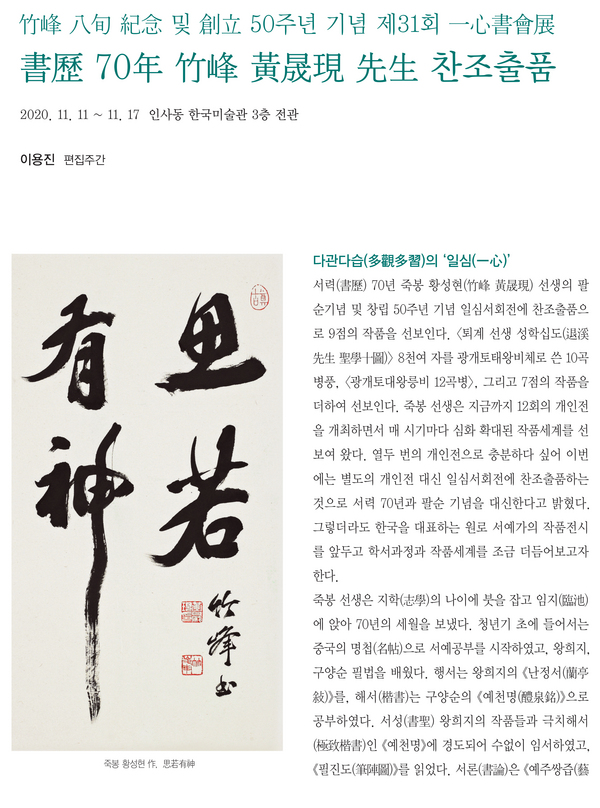 竹峰 八旬 紀念 및 創立 50주년 기념 제31회 一心書會展
書歷 70年 竹峰 黃晟現 先生 찬조출품
2020. 11. 11 ~ 11. 17 인사동 한국미술관 3층 전관
이용진 편집주간
思若
有神
竹峰 書
죽봉 황성현 作. 思若有神
다관다습(多觀多習)의 ‘일심(一心)’
서력(書歷) 70년 죽봉 황성현(竹峰 黃晟現) 선생의 팔
순기념 및 창립 50주년 기념 일심서회전에 찬조출품으
로 9점의 작품을 선보인다. 〈퇴계 선생 성학십도(退溪
先生 聖學十圖)〉 8천여 자를 광개토태왕비체로 쓴 10곡
병풍, 〈광개토대왕릉비 12곡병〉, 그리고 7점의 작품을
더하여 선보인다. 죽봉 선생은 지금까지 12회의 개인전
을 개최하면서 매 시기마다 심화 확대된 작품세계를 선
보여 왔다. 열두 번의 개인전으로 충분하다 싶어 이번
에는 별도의 개인전 대신 일심서회전에 찬조출품하는
것으로 서력 70년과 팔순 기념을 대신한다고 밝혔다.
그렇더라도 한국을 대표하는 원로 서예가의 작품전시
를 앞두고 학서과정과 작품세계를 조금 더듬어보고자
한다.
죽봉 선생은 지학(志學)의 나이에 붓을 잡고 임지(臨池)
에 앉아 70년의 세월을 보냈다. 청년기 초에 들어서는
중국의 명첩(名帖)으로 서예공부를 시작하였고, 왕희지,
구양순 필법을 배웠다. 행서는 왕희지의 《난정서(蘭亭
敍)》를, 해서(楷書)는 구양순의 《예천명(醴泉銘)》으로
공부하였다. 서성(書聖) 왕희지의 작품들과 극치해서
(極致楷書)인 《예천명》에 경도되어 수없이 임서하였고,
《필진도(筆陣圖)》를 읽었다. 서론(書論)은 《예주쌍즙(藝